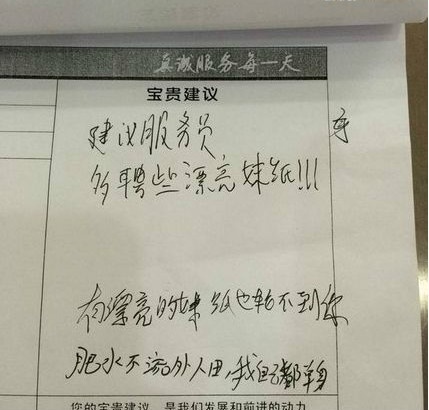 真诚服务每一天
宝贵建议
建议服务员,
多聘些漂亮妹纸!!!
有漂亮的妹纸也轮不到你
肥水不流外人田,我自己都单身
您的宝贵建议,是我们发展和前进的动力